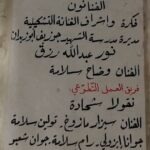 الفنانون
فكرة وإشراف الفنانة التشكيلية
مديرة مدرسة الشهيد جوزيف أبوزيدان
نور عبدالله رزق
الفنان وضاح سلامة
فريق العمل التطوعي
نقولا شحادة
الفنان سيزار مازوخ، تولين سلامة
جوانا إزولي، رام سلامة، جوان شعبو